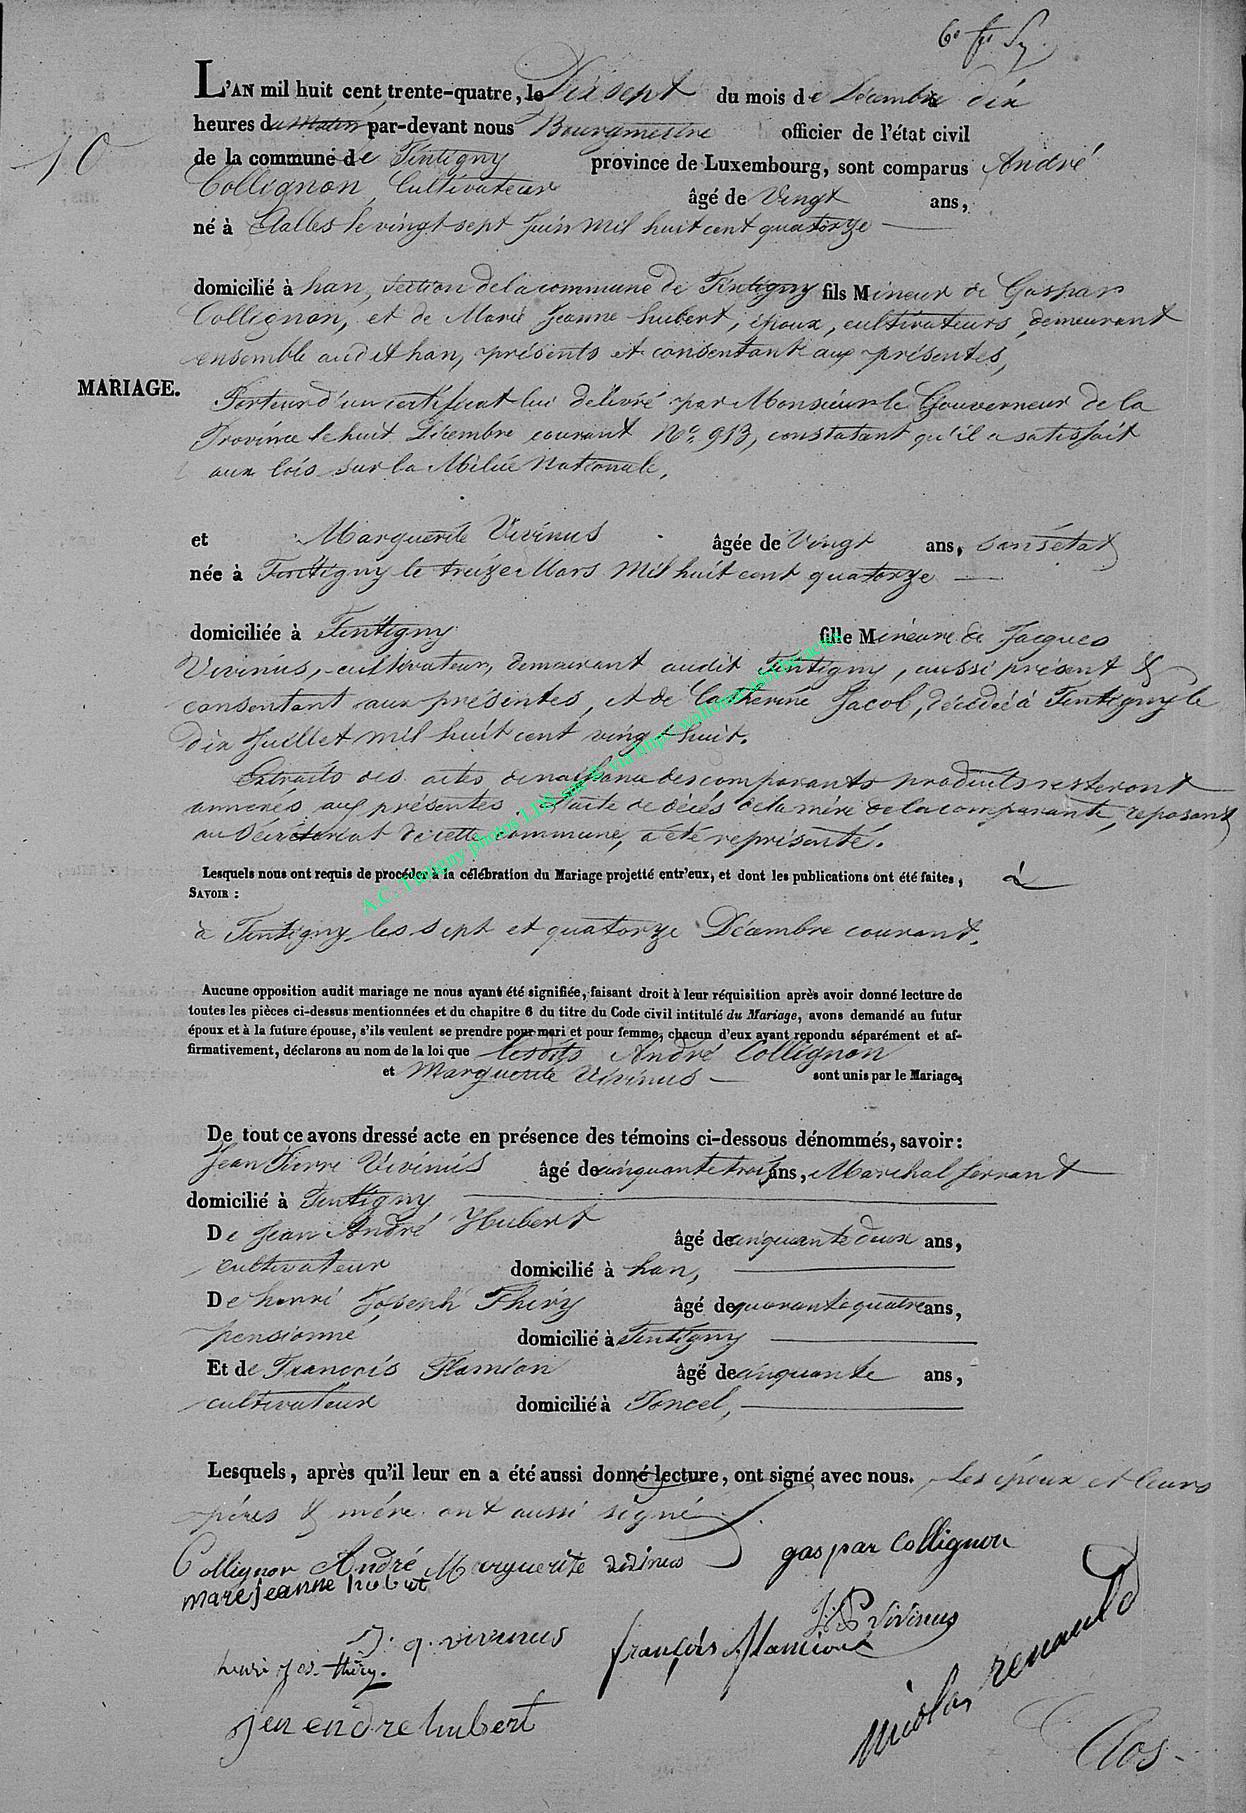 6e
L'AN mil huit cent trente-quatre, le Dix sept du mois de Décembre dix
heures du matin par-devant nous Bourgmestre officier de l'état civil
10
de la commune de Tintigny province de Luxembourg, sont comparus André
Collignon, Cultivateur âgé de Vingt ans,
né à le vingt sept Juin mil huit cent quatorze
domicilié à han, section de la commune de Tintigny fils Mineur de Gaspar
Collignon, et de Marie Jeanne hubert, époux, cultivateurs, demeurant
ensemble audit han, présents et consentant aux présentes,
MARIAGE.
Porteur d'un certificat lui délivré par Monsieur le Gouverneur de la
Province le huit Décembre courant No. 913, constatant qu'il a satisfait
aux lois sur la Milice Nationale,
et Marguerite Vivinus âgée de Vingt ans, sans état
née à Tintigny le treize Mars Mil huit cent quatorze
domiciliée à Tintigny fille Mineure de Jacques
Vivinus, cultivateur, demeurant audit Tintigny, aussi présent &
consentant aux présentes, et de Catherine Jacob, décédée à Tintigny le
dix Juillet mil huit cent vingt huit.
Extraits des actes de naissance des comparants produits resteront
annexés aux présentes l'acte de décès de la mère de la comparante, reposant
au Sécrétariat de cette commune, a été représenté.
Lesquels nous ont requis de procéder à la célébration du Mariage projetté entr'eux, et dont les publications ont été faites, à
SAVOIR :
à Tintigny les sept et quatorze Décembre courant.
Aucune opposition audit mariage ne nous ayant été signifiée, faisant droit à leur réquisition après avoir donné lecture de
toutes les pièces ci-dessus mentionnées et du chapitre 6 du titre du Code civil intitulé du Mariage, avons demandé au futur
époux et à la future épouse, s'ils veulent se prendre pour mari et pour femme, chacun d'eux ayant repondu séparément et af-
firmativement, déclarons au nom de la loi que lesdits André Collignon
et Marguerite Vivinus sont unis par le Mariage,
De tout ce avons dressé acte en présence des témoins ci-dessous dénommés, savoir:
Jean Pierre Vivinus âgé de cinquante trois ans, Maréchal ferrant
domicilié à Tintigny
De Jean André Hubert âgé de cinquante deux ans,
cultivateur domicilié à han,
De henri Joseph Thiry âgé de quarante quatre ans,
pensionné domicilié à Tintigny
Et de François Flamion âgé de cinquante ans,
cultivateur domicilié à Poncel,
Lesquels, après qu'il leur en a été aussi donné lecture, ont signé avec nous. Les époux et leurs
pères & mère ont aussi signé
Collignon André Marguerite vivinus gaspar Collignon
mare jeanne hubert
J. P vivinus
J. q. vivinus françois flamion
henri jos. thiry.
nicolas renauld
jen endre hubert
Clos